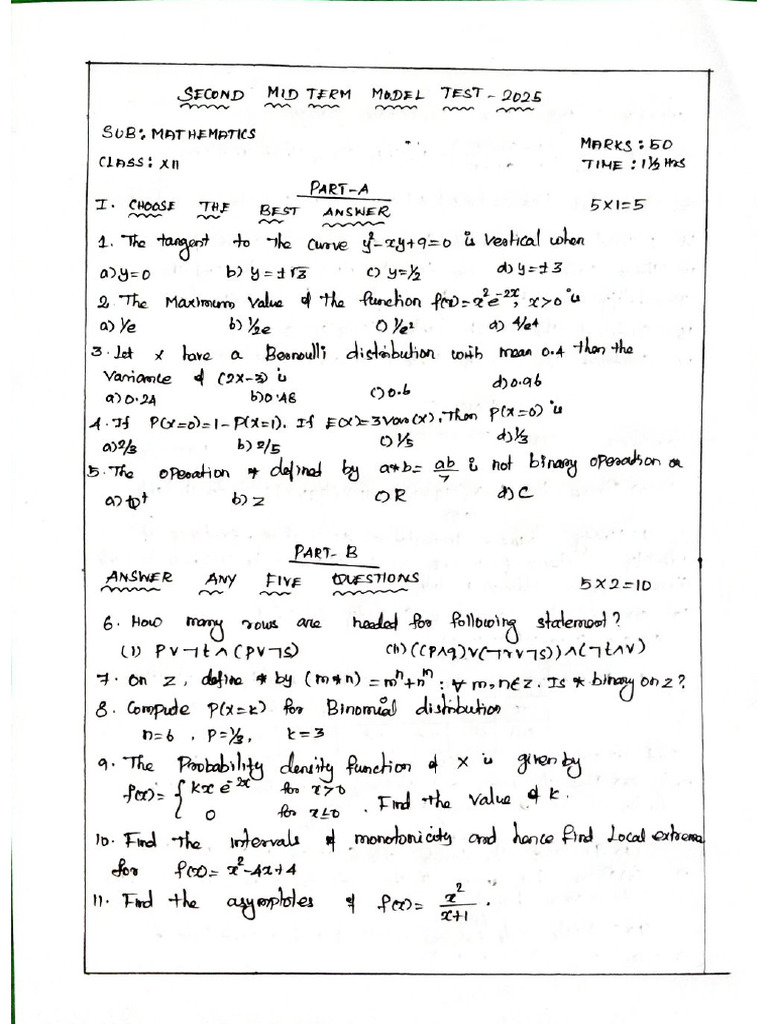 SECOND MID TERM MODEL TEST - 2025
SUB: MATHEMATICS
MARKS: 50
CLASS: XII
TIME: 1½ Hrs
PART-A
I. CHOOSE THE BEST ANSWER 5X1=5
1. The tangent to the curve y²-xy+9=0 is vertical when
a) y=0 b) y=±√3 c) y=½ d) y=±3
2. The Maximum value of the function f(x)=x²e^-2x, x>0 is
a) 1/e b) 1/2e c) 1/e² d) 4/e⁴
3. Let x have a Bernoulli distribution with mean 0.4 then the
variance of (2x-3) is
a) 0.24 b) 0.48 c) 0.6 d) 0.96
4. If P(x=0)=1-P(x=1). If E(x)=3Var(x), Then P(x=0) is
a) 2/3 b) 2/5 c) 1/5 d) 1/3
5. The operation * defined by a*b = ab/7 is not binary operation on
a) Q⁺ b) Z c) R d) C
PART-B
ANSWER ANY FIVE QUESTIONS 5X2=10
6. How many rows are needed for following statement?
(i) P∨¬t∧(P∨¬S) (ii) ((P∧q)∨(¬r∨¬S))∧(¬t∧v)
7. On Z, define * by (m*n) = mⁿ+nᵐ : ∀ m,n∈Z. Is * binary on Z?
8. Compute P(x=k) for Binomial distribution
n=6, P=⅓, k=3
9. The Probability density function of X is given by
f(x)= { kx e^-2x for x>0
0 for x≤0 . Find the value of k.
10. Find the intervals of monotonicity and hence find Local extrema
for f(x)=x²-4x+4
11. Find the asymptotes of f(x)= x²/x+1 .